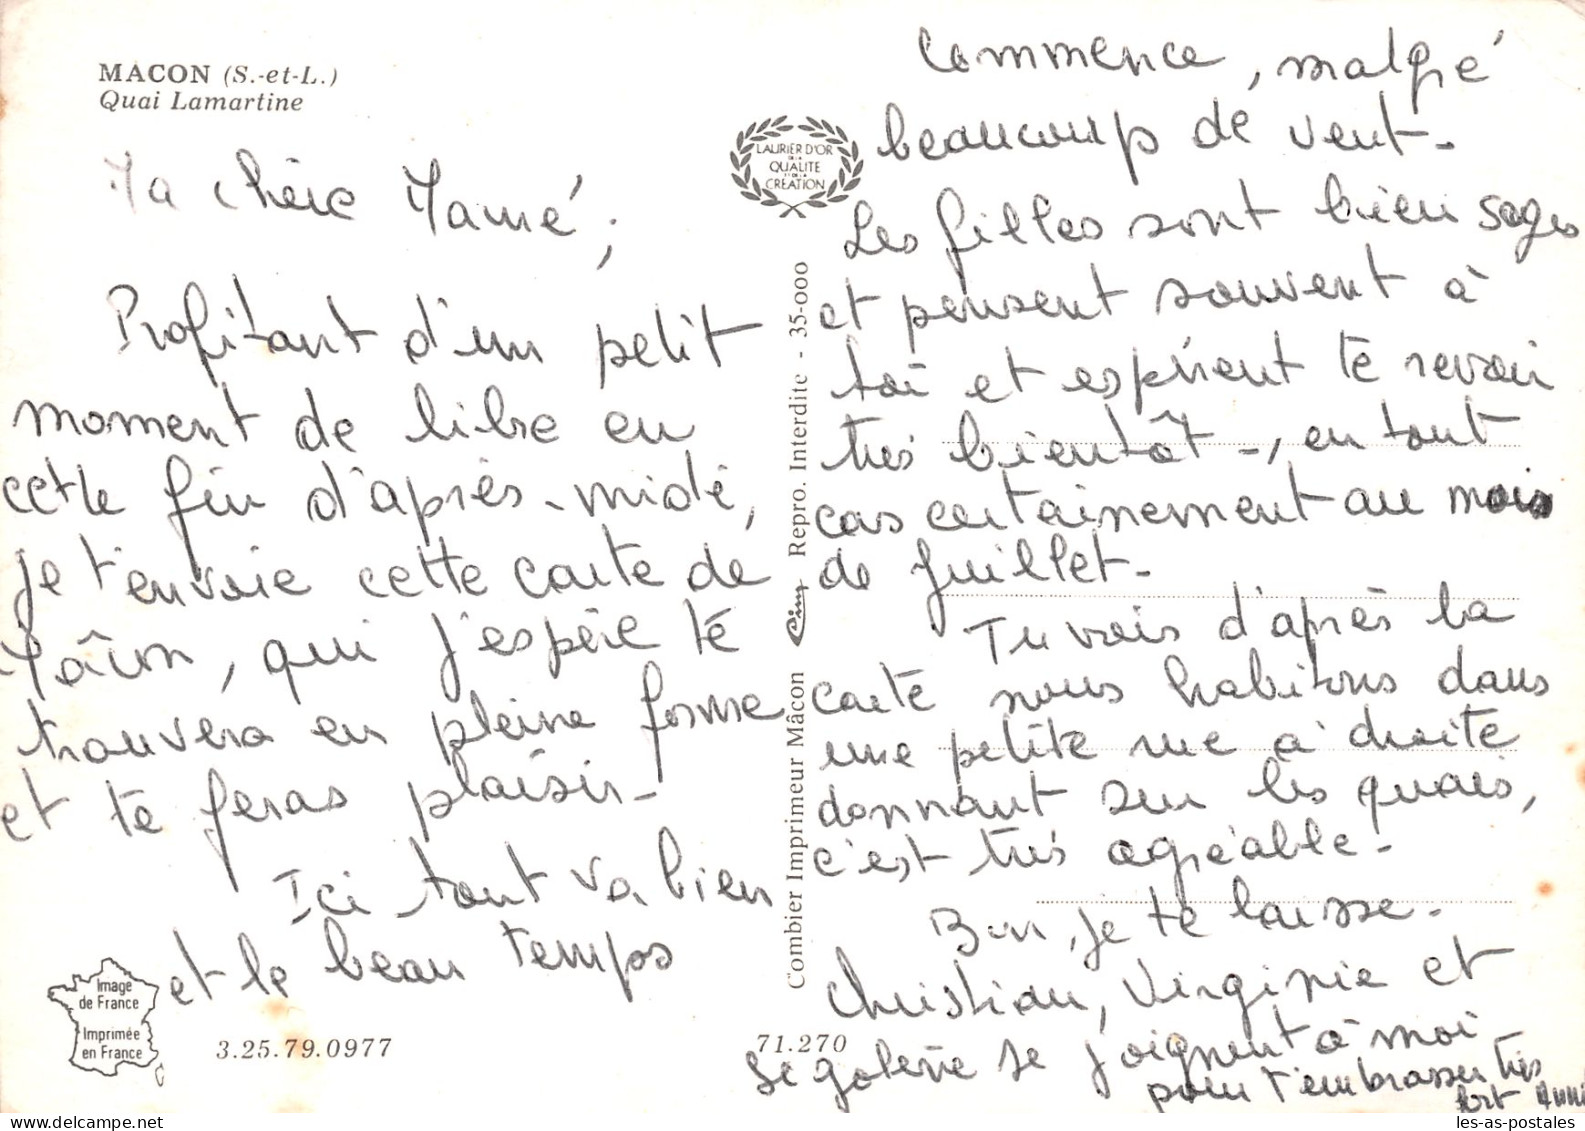 MACON (S.-et-L.)
Quai Lamartine
Ma chère Mamé,
Profitant d'un petit
moment de libre en
cette fin d'après-midi,
je t'envoie cette carte de
Mâcon, qui j'espère te
trouvera en pleine forme
et te feras plaisir-
Ici tout va bien
et le beau temps
commence, malgré
beaucoup de vent-
Les filles sont bien sages
et pensent souvent à
toi et espèrent te revoir
très bientôt-, en tout
cas certainement au mois
de Juillet-
Tu vois d'après la
carte nous habitons dans
une petite rue à droite
donnant sur les quais,
c'est très agréable-
Bon, je te laisse-
Christian, Virginie et
Ségolène se joignent à moi
pour t'embrasser très
fort Anni
LAURIER D'OR
DE LA
QUALITE
ET DE LA
CREATION
Combier Imprimeur Mâcon Cim Repro. Interdite - 35-000
Image
de France
Imprimée
en France
3.25.79.0977
71.270
les-as-postales.com